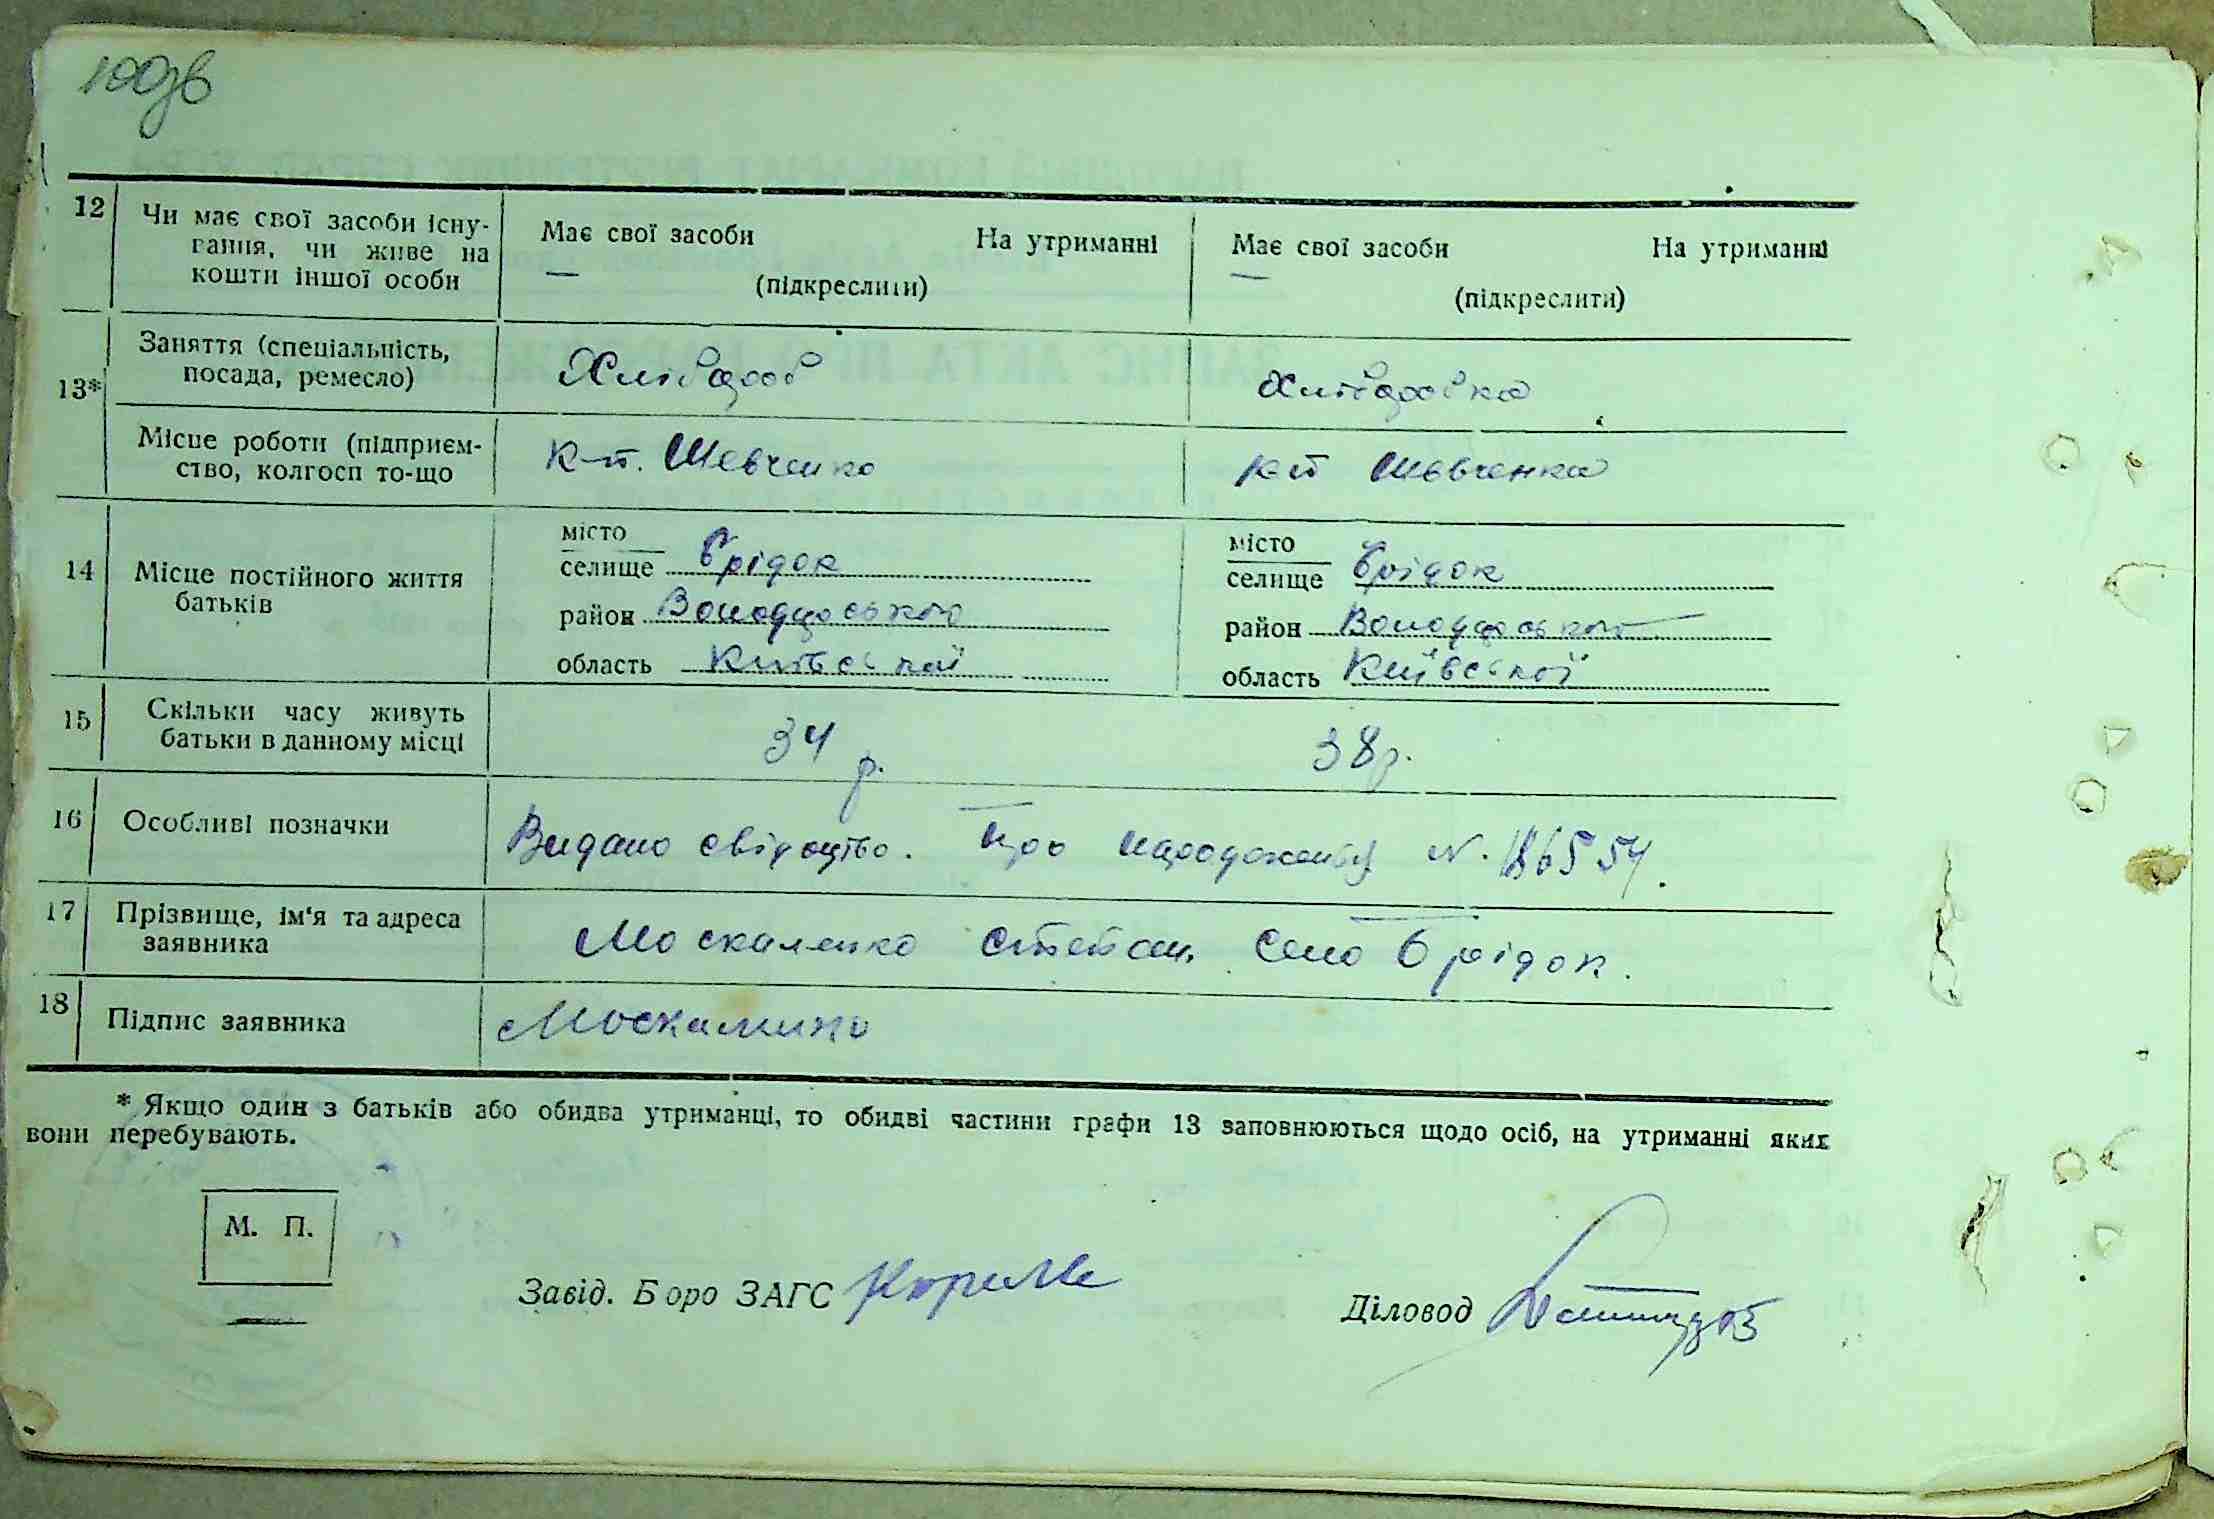 100зв
12 Чи має свої засоби існу-
гання, чи живе на
кошти іншої особи
Має свої засоби На утриманні
(підкреслити)
Має свої засоби На утриманні
(підкреслити)
13* Заняття (спеціальність,
посада, ремесло)
Хлібороб
Хліборобка
Місце роботи (підприєм-
ство, колгосп то-що
к-п. Шевченко
Шевченка
14 Місце постійного життя
батьків
місто
селище Єрідок
район Володарського
область Київської
місто
селище Єрідок
район Володарського
область Київської
15 Скільки часу живуть
батьки в данному місці
34 р.
38 р.
16 Особливі позначки
Видано свідоцтво. про народження N.
17 Прізвище, ім'я та адреса
заявника
Москаленко Степан, село Єрідок.
18 Підпис заявника
Москаленко
* Якщо один з батьків або обидва утриманці, то обидві частини графи 13 заповнюються щодо осіб, на утриманні яких
вони перебувають.
М. П.
Завід. Боро ЗАГС
Діловод